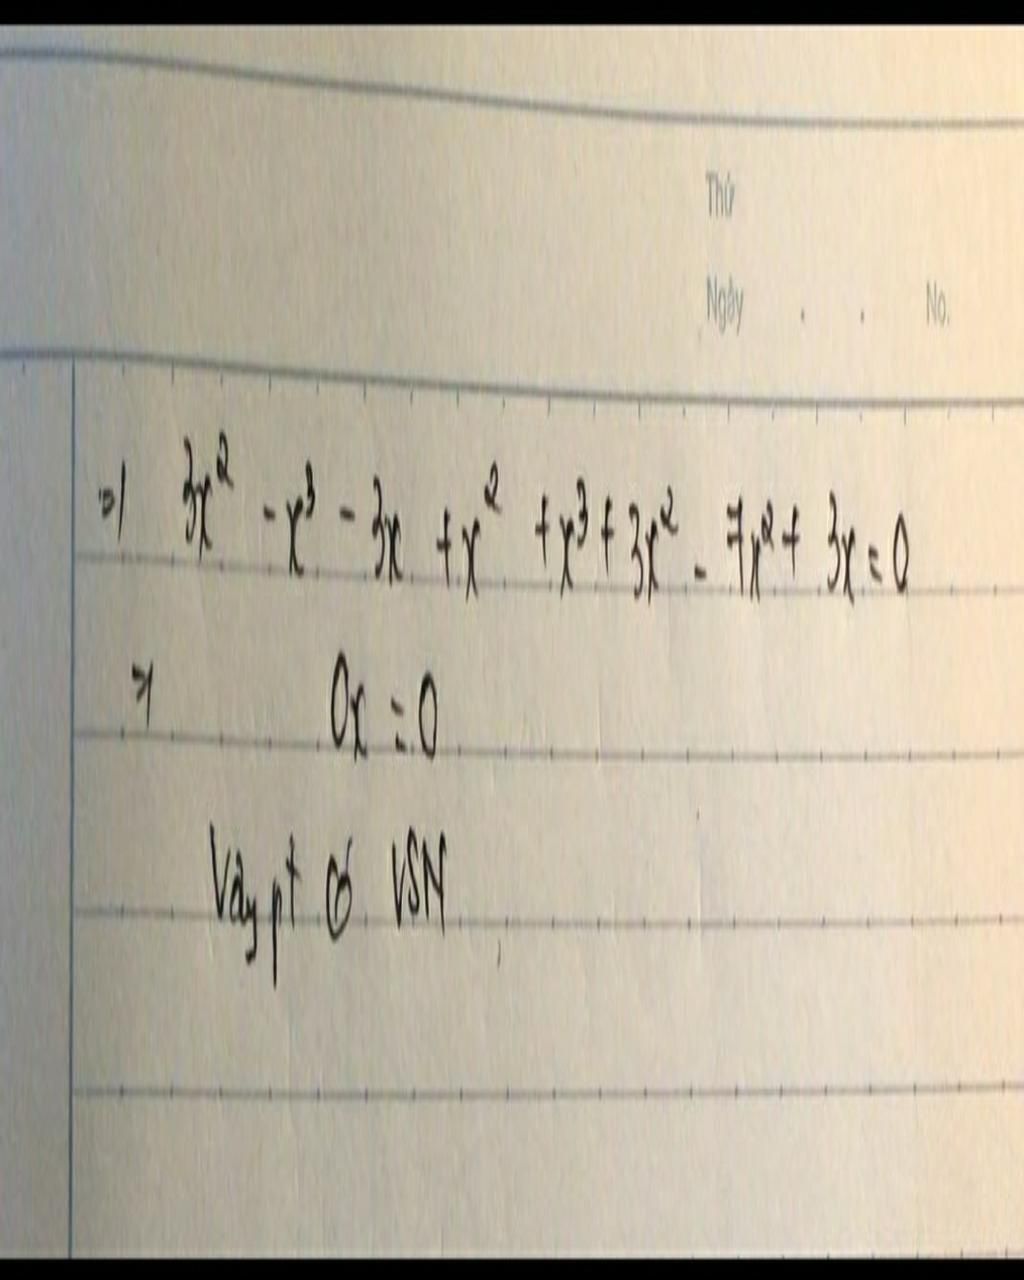 Thứ
Ngày . . No.
=> 3x² - x³ - 3x + x² + x³ + 3x² - 7x² + 3x = 0
=> 0x = 0
Vậy pt có VSN